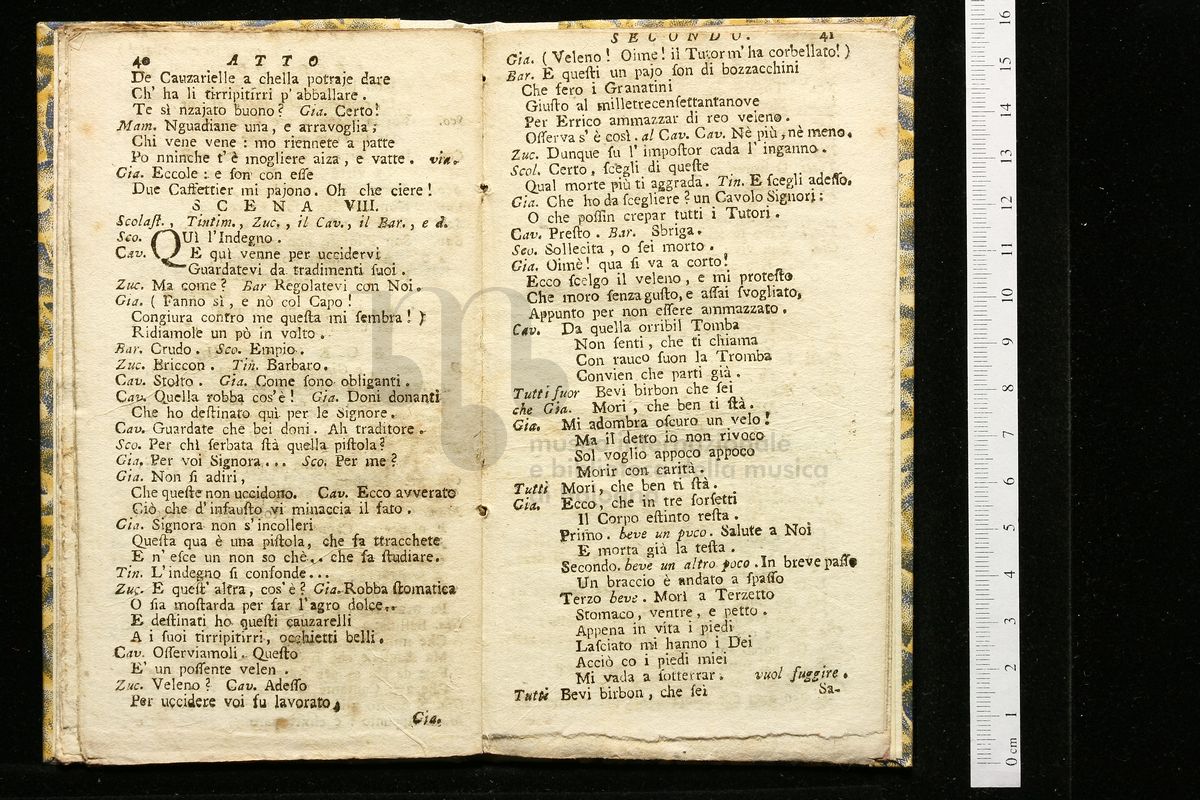 40 ATTO
De Cauzarielle a chella potraje dare
Ch' ha li tirripitirri p' abballare.
Te sì nzajato buono? Gia. Certo!
Mam. Nguadiane una, e arravoglia;
Chi vene vene: mo riennete a patte
Po nninche t' è mogliere aiza, e vatte. via.
Gia. Eccole: e ſon con eſſe
Due Caffettier mi pajono. Oh che ciere!
SCENA VIII.
Scolaſt., Tintim., Zuc., il Cav., il Bar., e d.
Sco. QUì l'Indegno.
Cav. E quì venne per uccidervi
Guardatevi da tradimenti ſuoi.
Zuc. Ma come? Bar Regolatevi con Noi.
Gia. (Fanno sì, e nò col Capo!
Congiura contro me queſta mi ſembra!)
Ridiamole un pò in volto.
Bar. Crudo. Sco. Empio.
Zuc. Briccon. Tin. Barbaro.
Cav. Stolto. Gia. Come ſono obliganti.
Cav. Quella robba cos'è! Gia. Doni donanti
Che ho deſtinato quì per le Signore.
Cav. Guardate che bei doni. Ah traditore.
Sco. Per chì ſerbata ſtà quella piſtola?
Gia. Per voi Signora... Sco. Per me?
Gia. Non ſi adiri,
Che queſte non uccidono. Cav. Ecco avverato
Ciò che d'infauſto vi minaccia il fato.
Gia. Signora non s'incolleri
Queſta qua è una piſtola, che fa ttracchete
E n' eſce un non so chè.. che fa ſtudiare.
Tin. L'indegno ſi confonde...
Zuc. E queſt'altra, cos'è? Gia. Robba ſtomatica
O ſia moſtarda per far l'agro dolce..
E deſtinati ho queſti cauzarelli
A i ſuoi tirripitirri, occhietti belli.
Cav. Oſſerviamoli. Queſto
E' un poſſente velen.
Zuc. Veleno? Cav. Adeſſo
Per uccidere voi fu lavorato,
Gia.
SECONDO. 41
Gia. (Veleno! Oimè! il Tutor m'ha corbellato!)
Bar. E queſti un pajo ſon di bozzacchini
Che fero i Granatini
Giuſto al milletrecenſettantanove
Per Errico ammazzar di reo veleno.
Oſſerva s'è così. al Cav. Cav. Nè più, nè meno.
Zuc. Dunque ſu l'impoſtor cada l'inganno.
Scol. Certo, ſcegli di queſte
Qual morte più ti aggrada. Tin. E ſcegli adeſſo.
Gia. Che ho da ſcegliere? un Cavolo Signori:
O che poſſin crepar tutti i Tutori.
Cav. Preſto. Bar. Sbriga.
Sco. Sollecita, o ſei morto.
Gia. Oimè! qua ſi va a corto!
Ecco ſcelgo il veleno, e mi proteſto
Che moro ſenza guſto, e aſſai ſvogliato,
Appunto per non eſſere ammazzato.
Cav. Da quella orribil Tomba
Non ſenti, che ti chiama
Con rauco ſuon la Tromba
Convien che parti già.
Tutti fuor Bevi birbon che ſei
che Gia. Mori, che ben ti ſtà.
Gia. Mi adombra oſcuro un velo!
Ma il detto io non rivoco
Sol voglio appoco appoco
Morir con carità.
Tutti Mori, che ben ti ſtà.
Gia. Ecco, che in tre ſorſetti
Il Corpo eſtinto reſta.
Primo. beve un poco. Salute a Noi
E morta già la teſta.
Secondo. beve un altro poco. In breve paſſo
Un braccio è andato a ſpaſſo
Terzo beve. Morì a Terzetto
Stomaco, ventre, e petto.
Appena in vita i piedi
Laſciato mi hanno i Dei
Acciò co i piedi miei
Mi vada a ſotterrar. vuol fuggire.
Tutti Bevi birbon, che ſei
Sa-